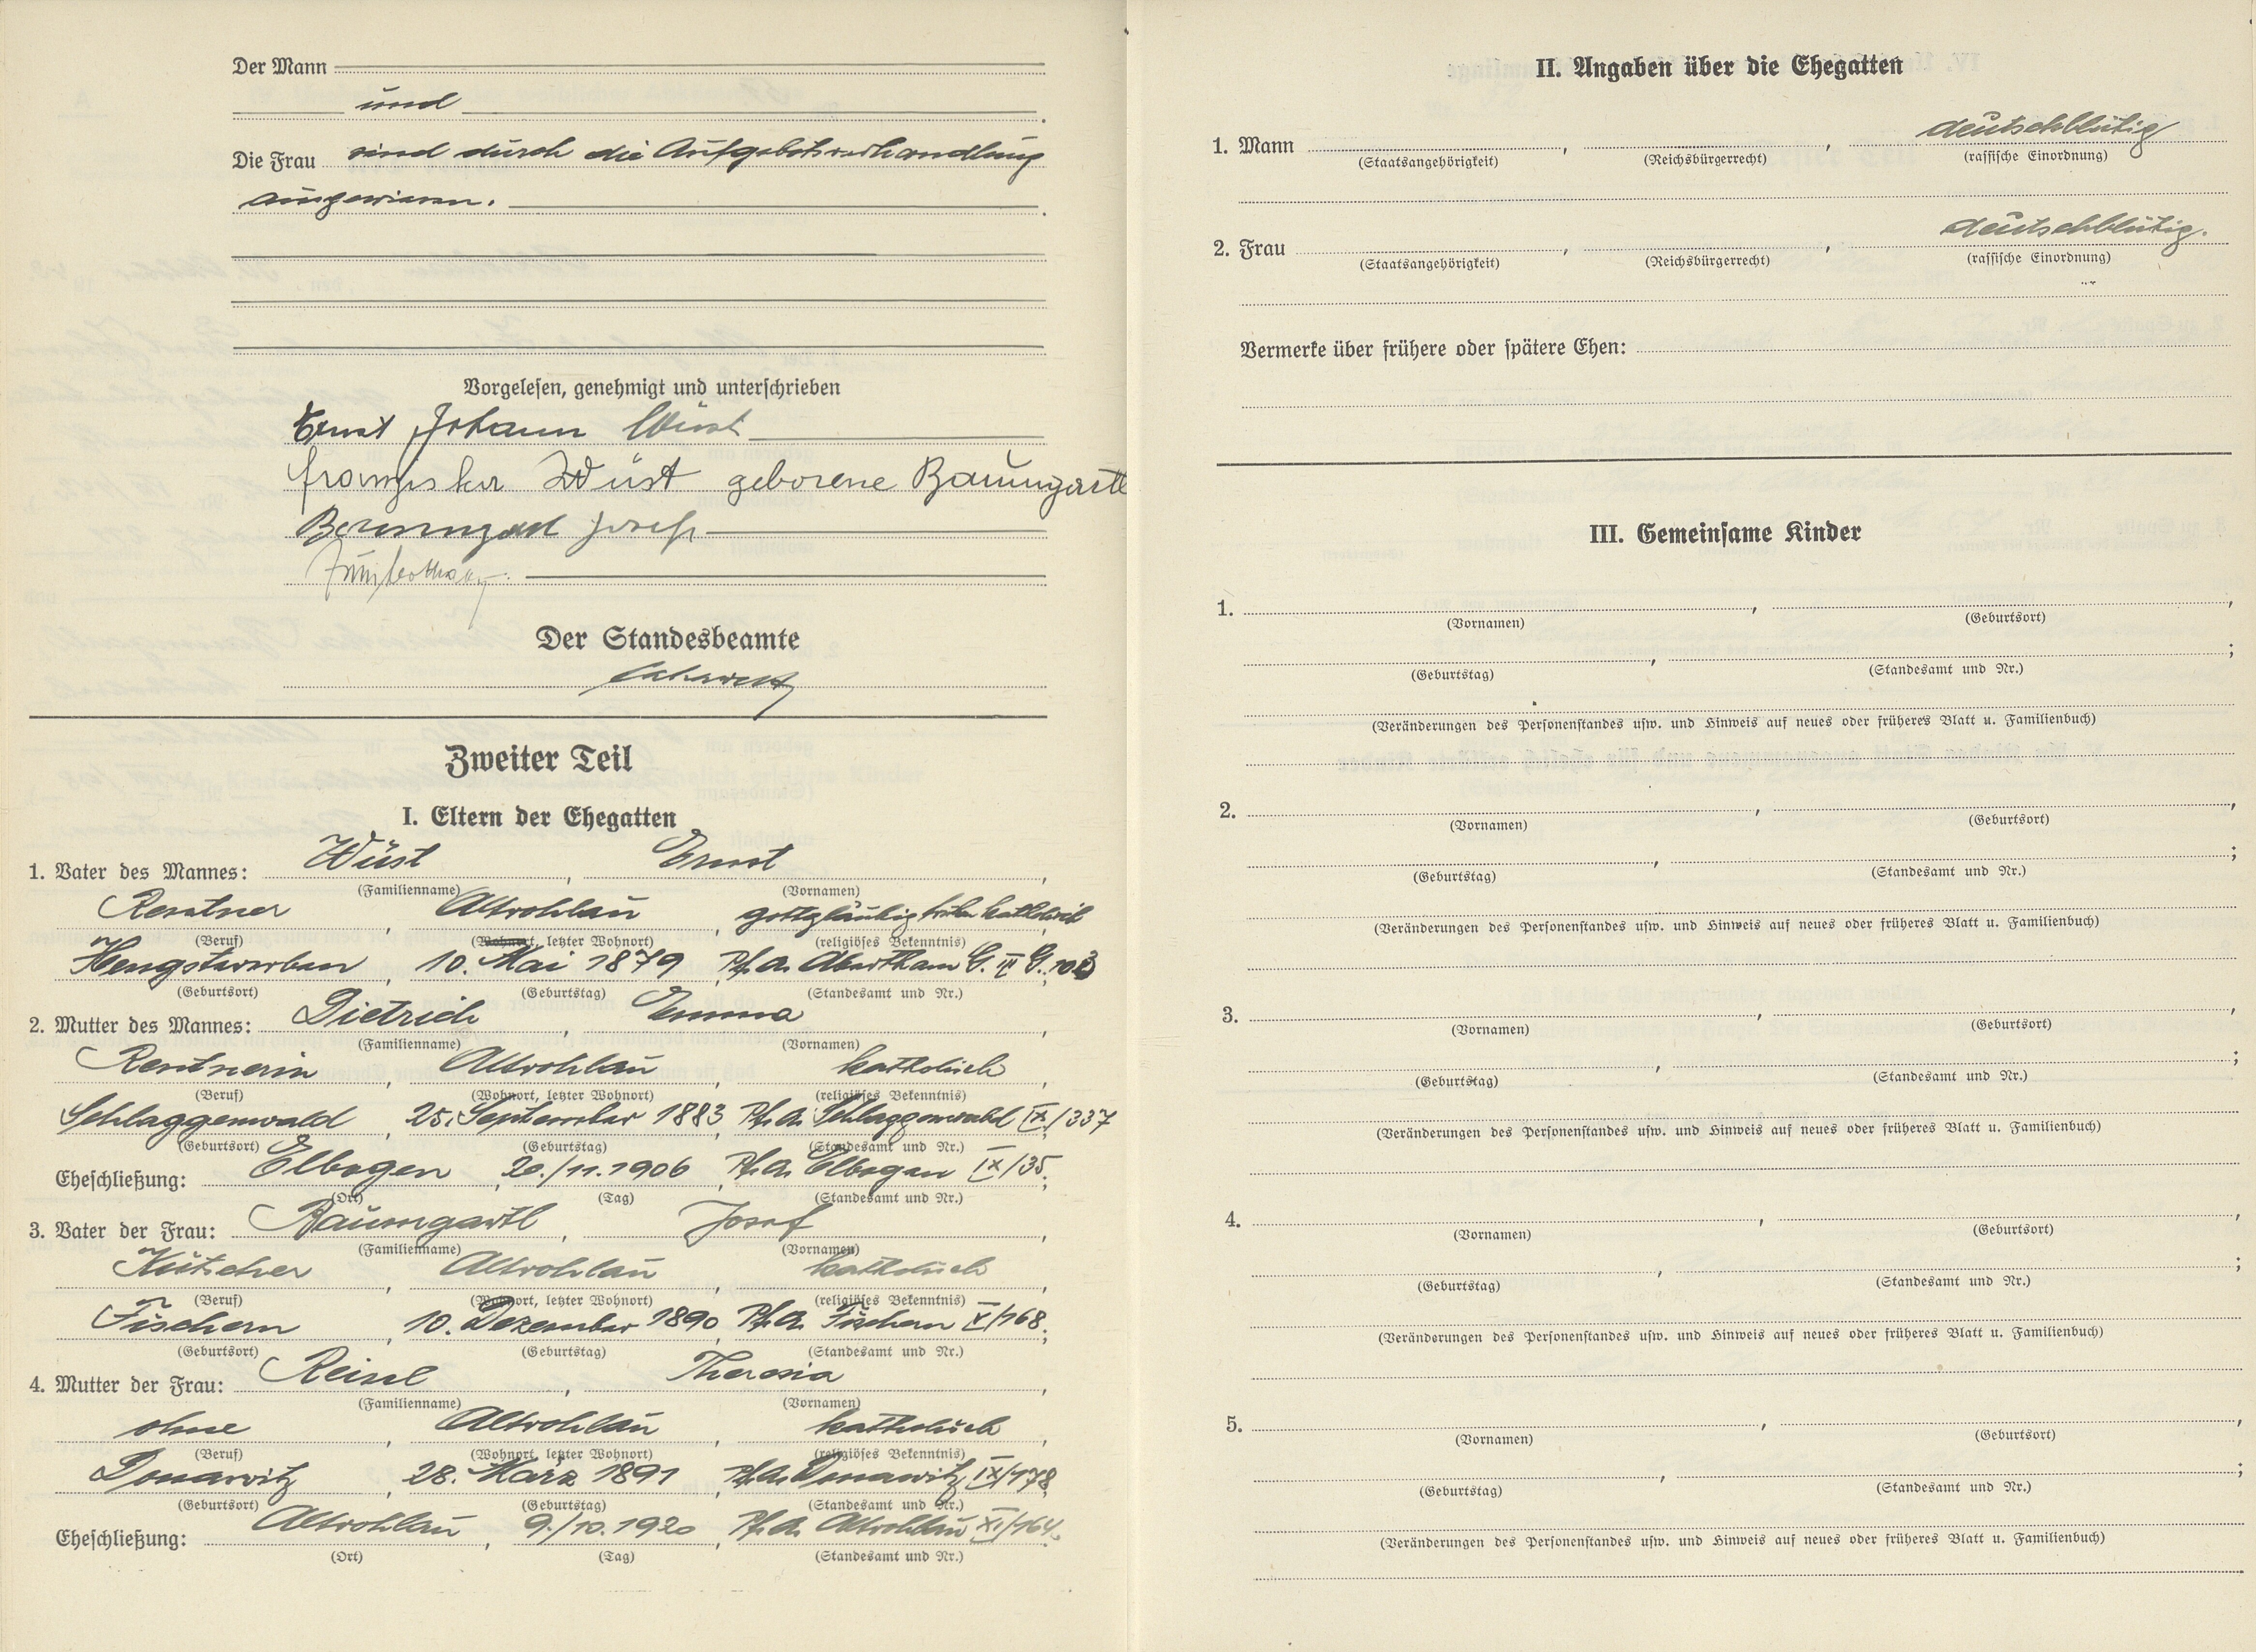 Der Mann
und
Die Frau sind durch die Aufgebotsverhandlung
ausgewiesen.
Vorgelesen, genehmigt und unterschrieben
Ernst Johann Wüst
Franziska Wüst geborene Baumgartl
Josef
Der Standesbeamte
Zweiter Teil
I. Eltern der Ehegatten
1. Vater des Mannes: Wüst, Ernst,
(Familienname) (Vornamen)
Rentner, Altrohlau, gottgläubig früher katholisch
(Beruf) (Wohnort, letzter Wohnort) (religiöses Bekenntnis)
Hengstererben, 10. Mai 1879, Pf.A. Abertham G. III G. 103
(Geburtsort) (Geburtstag) (Standesamt und Nr.)
2. Mutter des Mannes: Dietrich, Emma,
(Familienname) (Vornamen)
Rentnerin, Altrohlau, katholisch,
(Beruf) (Wohnort, letzter Wohnort) (religiöses Bekenntnis)
Schlaggenwald, 25. September 1883, Pf.A. Schlaggenwald IX/337
(Geburtsort) (Geburtstag) (Standesamt und Nr.)
Eheschließung: Elbogen, 20./11.1906, Pf.A. Elbogen IX/35;
(Ort) (Tag) (Standesamt und Nr.)
3. Vater der Frau: Baumgartl, Josef,
(Familienname) (Vornamen)
Kutscher, Altrohlau, katholisch,
(Beruf) (Wohnort, letzter Wohnort) (religiöses Bekenntnis)
Fischern, 10. Dezember 1890, Pf.A. Fischern V/168;
(Geburtsort) (Geburtstag) (Standesamt und Nr.)
4. Mutter der Frau: Reinl, Theresia,
(Familienname) (Vornamen)
ohne, Altrohlau, katholisch,
(Beruf) (Wohnort, letzter Wohnort) (religiöses Bekenntnis)
Donawitz, 28. März 1891, Pf.A. Donawitz IX/178
(Geburtsort) (Geburtstag) (Standesamt und Nr.)
Eheschließung: Altrohlau, 9./10.1920, Pf.A. Altrohlau XI/164.
(Ort) (Tag) (Standesamt und Nr.)
II. Angaben über die Ehegatten
1. Mann , , deutschblütig
(Staatsangehörigkeit) (Reichsbürgerrecht) (rassische Einordnung)
2. Frau , , deutschblütig.
(Staatsangehörigkeit) (Reichsbürgerrecht) (rassische Einordnung)
Vermerke über frühere oder spätere Ehen:
III. Gemeinsame Kinder
1. , ,
(Vornamen) (Geburtsort)
, ;
(Geburtstag) (Standesamt und Nr.)
(Veränderungen des Personenstandes usw. und Hinweis auf neues oder früheres Blatt u. Familienbuch)
2. , ,
(Vornamen) (Geburtsort)
, ;
(Geburtstag) (Standesamt und Nr.)
(Veränderungen des Personenstandes usw. und Hinweis auf neues oder früheres Blatt u. Familienbuch)
3. , ,
(Vornamen) (Geburtsort)
, ;
(Geburtstag) (Standesamt und Nr.)
(Veränderungen des Personenstandes usw. und Hinweis auf neues oder früheres Blatt u. Familienbuch)
4. , ,
(Vornamen) (Geburtsort)
, ;
(Geburtstag) (Standesamt und Nr.)
(Veränderungen des Personenstandes usw. und Hinweis auf neues oder früheres Blatt u. Familienbuch)
5. , ,
(Vornamen) (Geburtsort)
, ;
(Geburtstag) (Standesamt und Nr.)
(Veränderungen des Personenstandes usw. und Hinweis auf neues oder früheres Blatt u. Familienbuch)